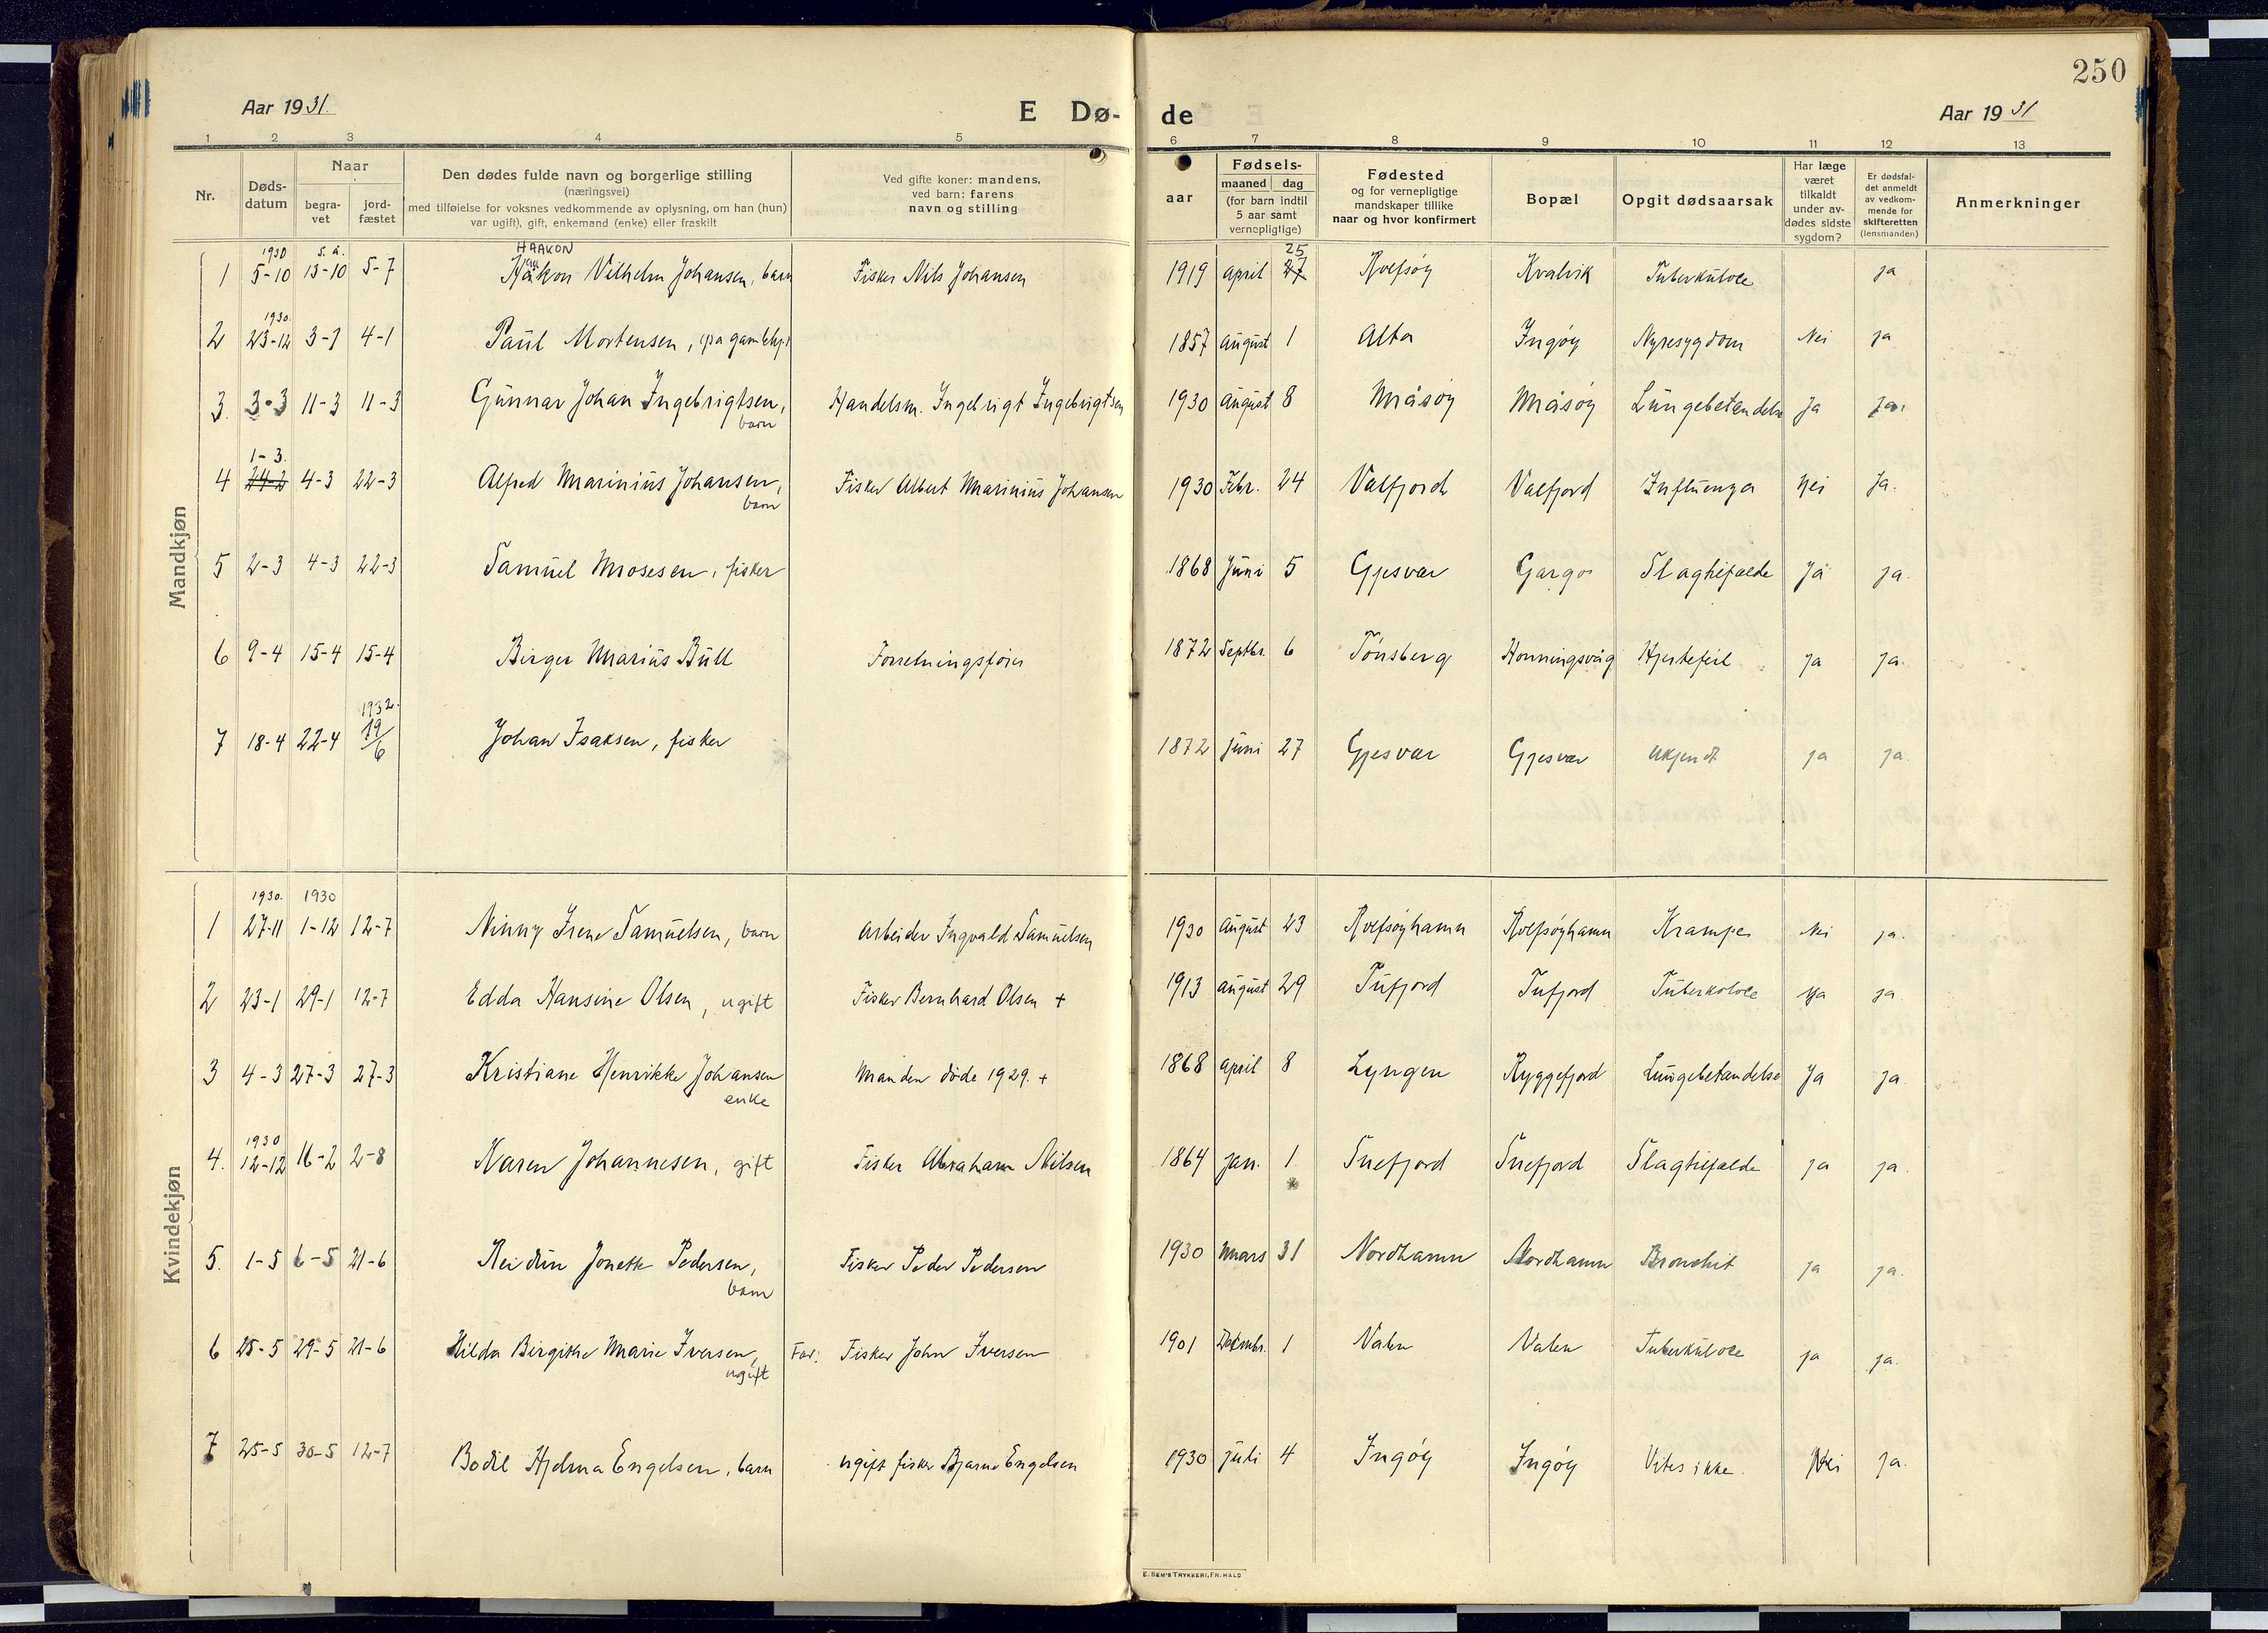 250
Aar 1931. E Dø- de Aar 1931
1 2 3 4 5 6 7 8 9 10 11 12 13
Nr.
Døds-
datum
Naar
begra-
vet
jord-
fæstet
Den dødes fulde navn og borgerlige stilling
(næringsvei)
med tilføielse for voksnes vedkommende av oplysning, om han (hun)
var ugift), gift, enkemand (enke) eller fraskilt
Ved gifte koner: mandens,
ved barn: farens
navn og stilling
aar
Fødsels-
maaned dag
(for barn indtil
5 aar samt
vernepligtige)
Fødested
og for vernepligtige
mandskaper tillike
naar og hvor konfirmert
Bopæl
Opgit dødsaarsak
Har læge
været
tilkaldt
under av-
dødes sidste
sygdom?
Er dødsfal-
det anmeldt
av vedkom-
mende for
skifteretten
(lensmanden)
Anmerkninger
Mandkjøn
1930 s. å. HAAKON 25
1 5-10 13-10 5-7 Håkon Vilhelm Johansen, barn Fisker Nils Johansen 1919 april 27 Rolfsøy Kvalvik Tuberkulose ja
1930.
2 23-12 3-1 4-1 Paul Mortensen, 1857 august 1 Alta Ingøy Nyresygdom Nei ja
3. 3-3 11-3 11-3 Gunnar Johan Ingebrigtsen, Handelsm. Ingebrigt Ingebrigtsen 1930 august 8 Måsøy Måsøy Lungebetændelse Ja ja.
barn
1-3.
4 24-2 4-3 22-3 Alfred Marinius Johansen, Fisker Albert Marinius Johansen 1930 Febr. 24 Valfjord Valfjord Influenza Nei Ja.
barn
5 2-3 4-3 22-3 Samuel Mosesen, fisker 1868 Juni 5 Gjesvær Gargo Slagtilfælde Ja ja.
6 9-4 15-4 15-4 Birger Marius Bull Forretningsfører 1872 Septbr. 6 Tønsberg Honningsvåg Hjertefeil ja ja.
1932.
7 18-4 22-4 19/6 Johan Isaksen, fisker 1872 juni 27 Gjesvær Gjesvær ukjendt ja ja.
Kvindekjøn
1930. 1930
1 27-11 1-12 12-7 Ninny Irene Samuelsen, barn Arbeider Ingvald Samuelsen 1930 August 23 Rolfsøyhamn Rolfsøyhamn Krampe Nei ja.
2 23-1 29-1 12-7 Edda Hansine Olsen, ugift Fisker Bernhard Olsen + 1913 august 29 Tufjord Tufjord Tuberkulose ja ja.
3 4-3 27-3 27-3 Kristiane Henrikke Johansen Manden døde 1929. + 1868 april 8 Lyngen Ryggefjord Lungebetændelse Ja ja.
enke
1930
4. 12-12 16-2 2-8 Karen Johannesen, gift Fisker Abraham Nilsen 1864 jan. 1 Snefjord Snefjord Slagtilfælde ja ja.
5. 1-5 6-5 21-6 Reidun Jonette Pedersen, Fisker Peder Pedersen 1930 Mars 31 Nordhamn Nordhamn Bronchit ja ja.
barn
6 25-5 29-5 21-6 Hilda Birgithe Marie Iversen, Far: Fisker John Iversen 1901 Decembr. 1 Valen Valen Tuberkulose ja ja.
ugift
7 25-5 30-5 12-7 Bodil Hjelma Engelsen, barn ugift fisker Bjarne Engelsen 1930 juli 4 Ingøy Ingøy Vites ikke. Nei ja.
E. SEM'S TRYKKERI, FR.HALD